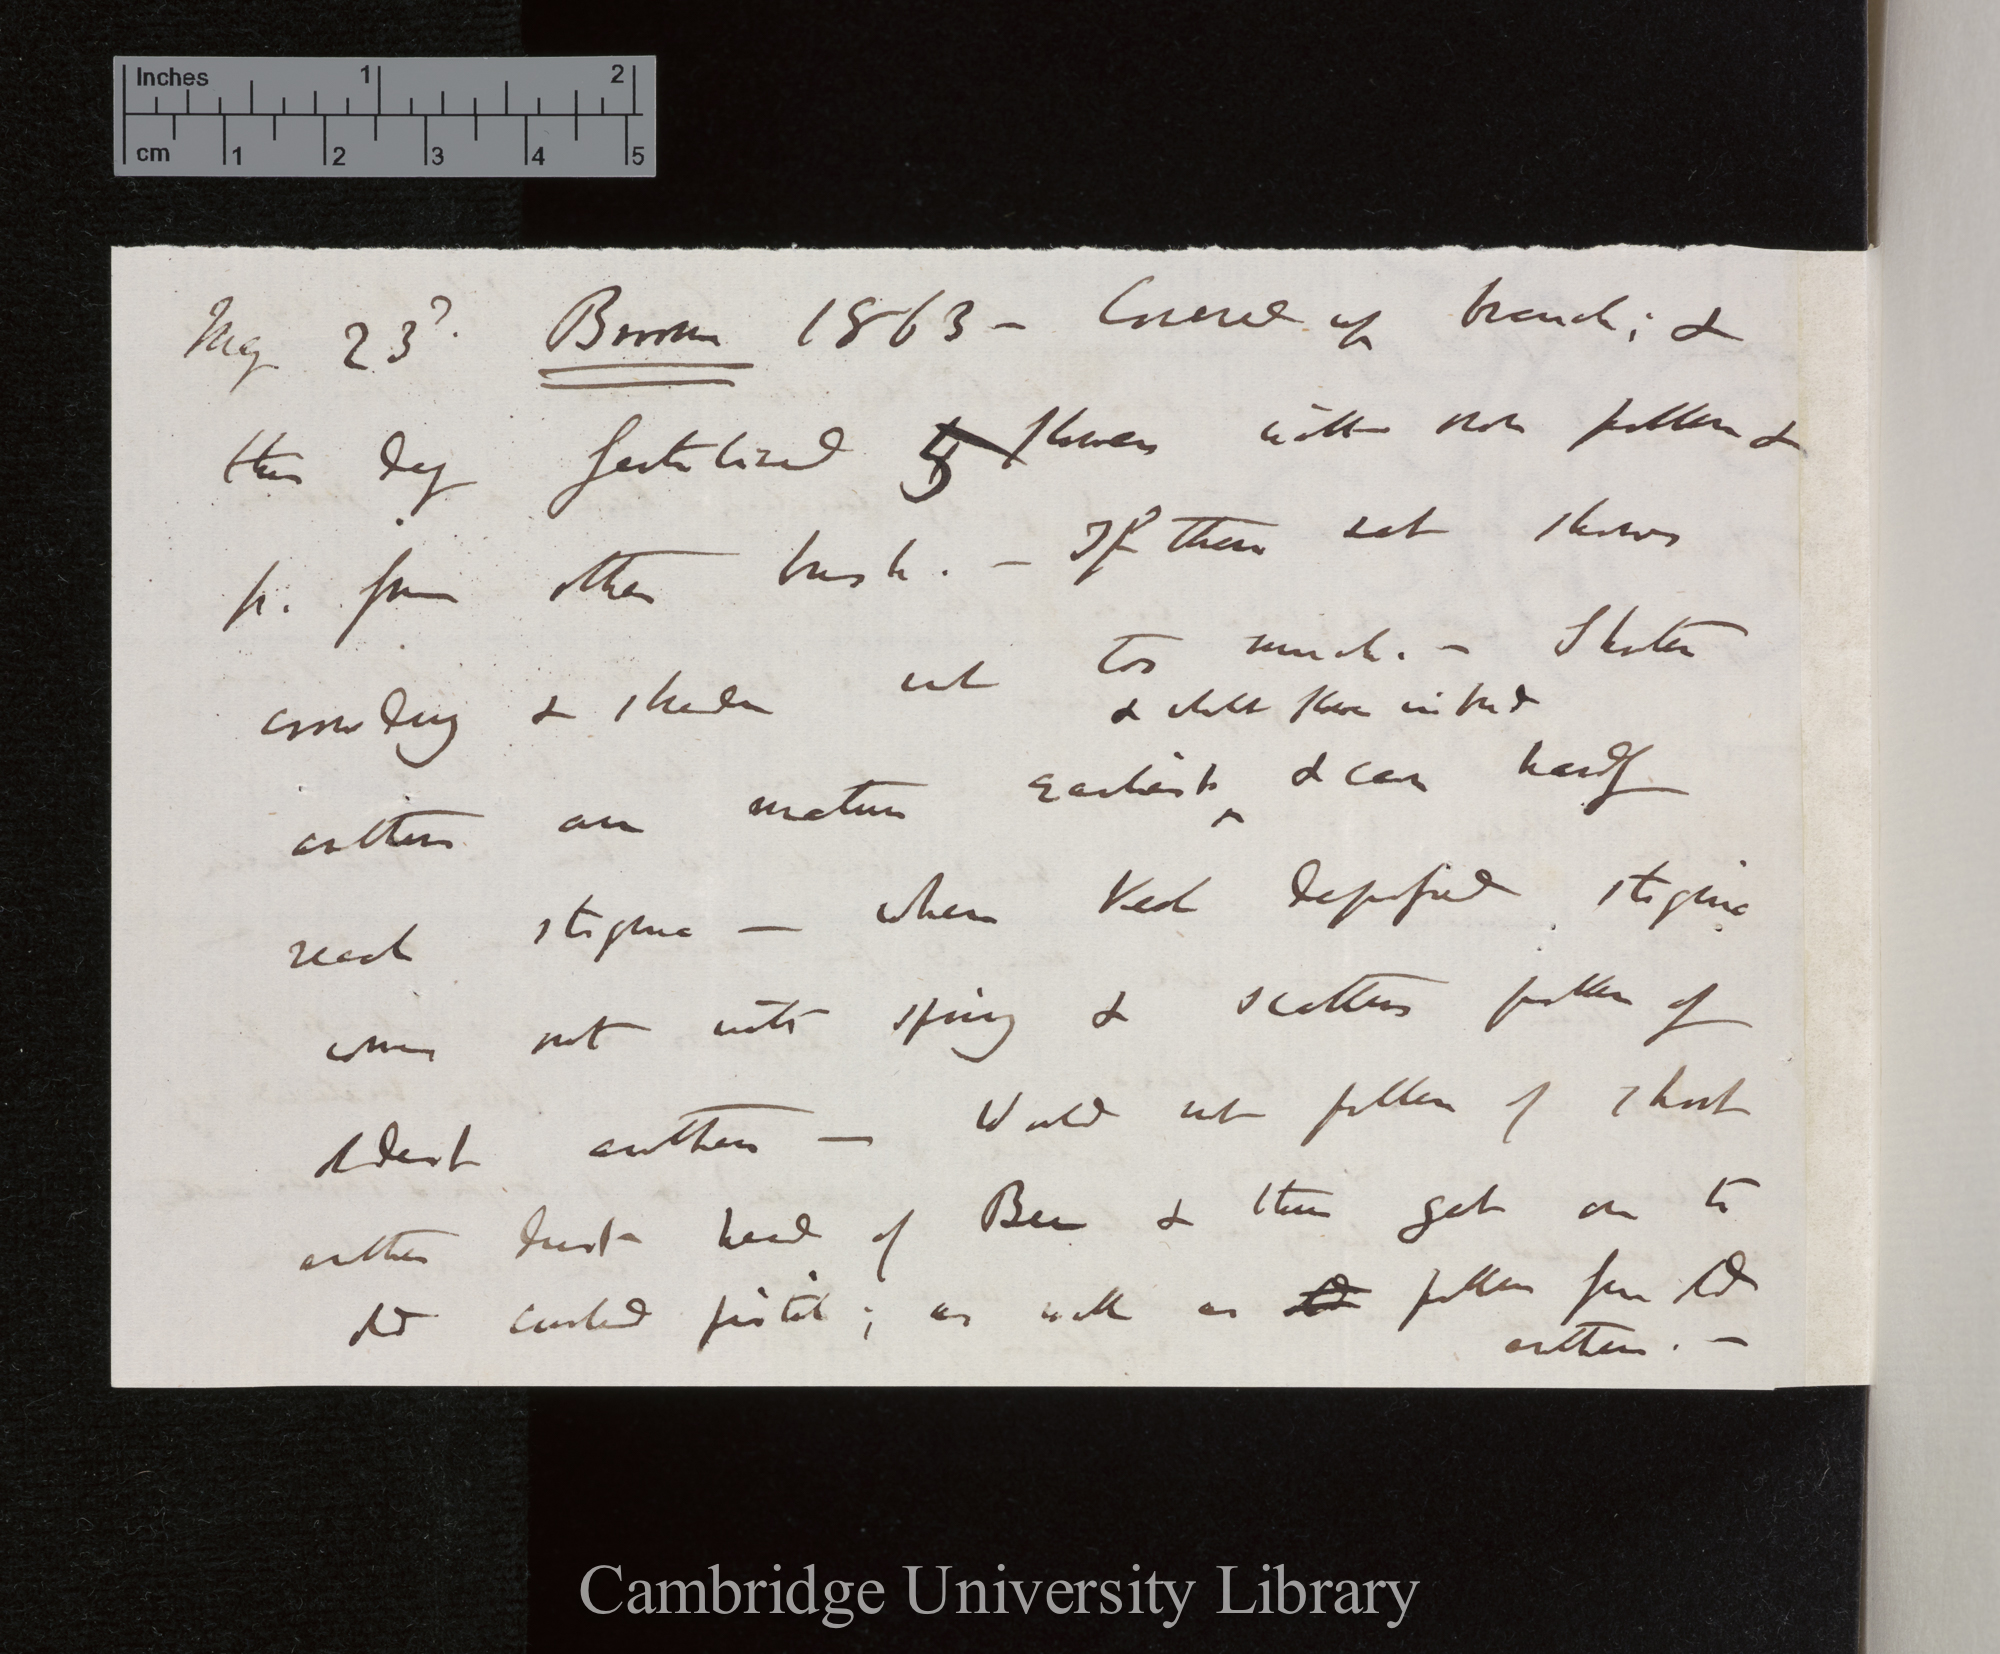 Inches 1 2
cm 1 2 3 4 5
May 23d. Broom 1863 — Covered up branch; &
this day fertilised 5 flowers with own pollen &
p. from other bush. — If these set shows
crowding & shade not too much. — Shorter
& whilst flower in bud
anthers are mature earliest ^ & can hardly
reach stigma — when Keel depressed stigma
comes out with spring & scatters pollen of
anthers — Would not pollen of short
anthers dust head of Bee & then get on to
curled pistil; as well as pollen from
anthers. —
Cambridge University Library